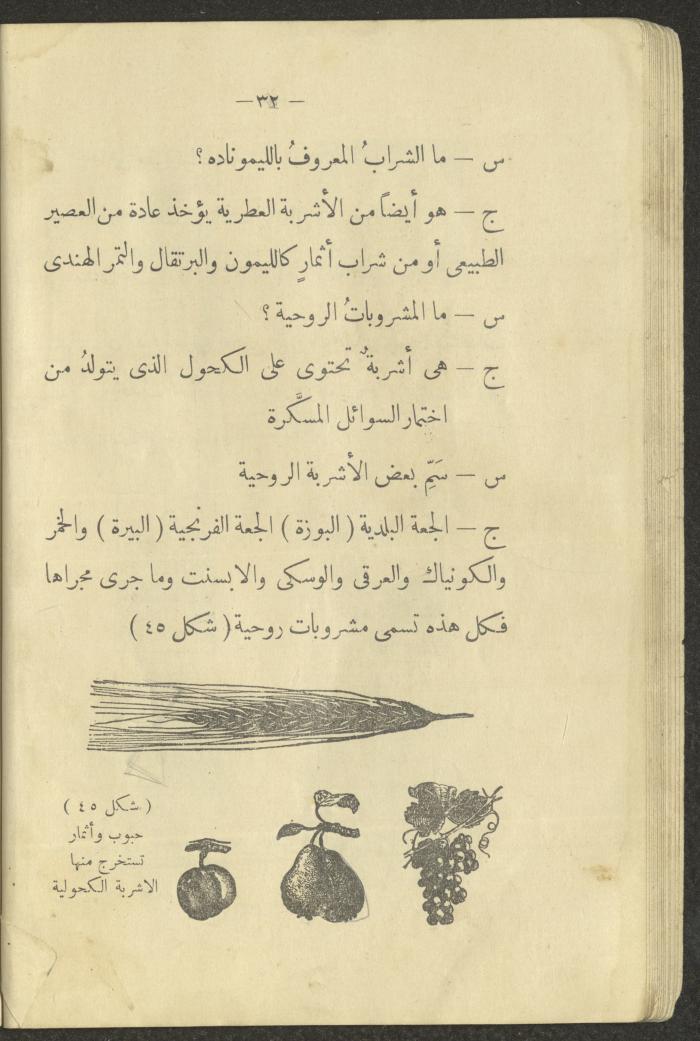 — ٣٢ —
س — ما الشرابُ المعروفُ بالليموناده؟
ج — هو أيضاً من الأشربة العطرية يؤخذ عادة من العصير
الطبيعى أو من شراب أثمارٍ كالليمون والبرتقال والتمر الهندى
س — ما المشروباتُ الروحية؟
ج — هى أشربةٌ تحتوى على الكحول الذى يتولدُ من
اختمار السوائل المسكَّرة
س — سَمِّ بعض الأشربة الروحية
ج — الجعة البلدية (البوزة) الجعة الفرنجية (البيرة) والخمر
والكونياك والعرقى والوسكى والابسنت وما جرى مجراها
فكل هذه تسمى مشروبات روحية (شكل ٤٥)
(شكل ٤٥)
حبوب وأثمار
تستخرج منها
الاشربة الكحولية